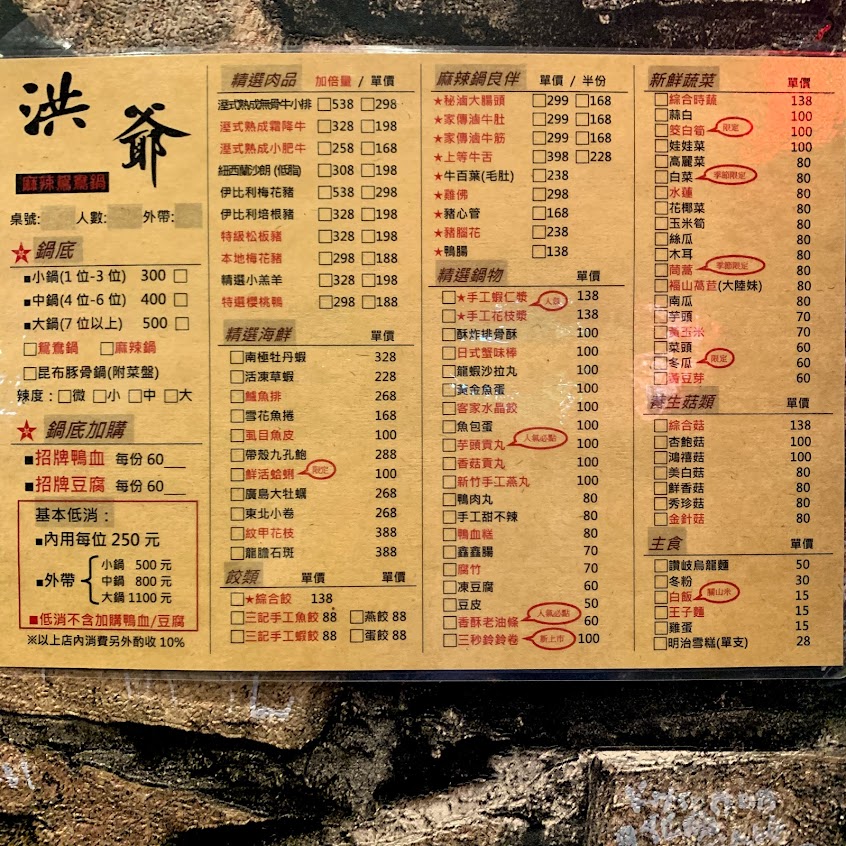 洪爺
麻辣鴛鴦鍋
桌號: 人數: 外帶:
鍋底
■小鍋(1 位-3 位) 300 □
■中鍋(4 位-6 位) 400 □
■大鍋(7 位以上) 500 □
□鴛鴦鍋 □麻辣鍋
□昆布豚骨鍋(附菜盤)
辣度：□微 □小 □中 □大
鍋底加購
■招牌鴨血 每份 60___
■招牌豆腐 每份 60___
基本低消：
■內用每位 250 元
■外帶
小鍋 500 元
中鍋 800 元
大鍋 1100 元
■低消不含加購鴨血/豆腐
※以上店內消費另外酌收 10%
精選肉品 加倍量 / 單價
溼式熟成無骨牛小排 □538 □298
溼式熟成霜降牛 □328 □198
溼式熟成小肥牛 □258 □168
紐西蘭沙朗 (低脂) □308 □198
伊比利梅花豬 □538 □298
伊比利培根豬 □328 □198
特級松板豬 □328 □198
本地梅花豬 □298 □188
精選小羔羊 □328 □198
特選櫻桃鴨 □298 □188
精選海鮮 單價
□南極牡丹蝦 328
□活凍草蝦 228
□鱸魚排 268
□雪花魚捲 168
□虱目魚皮 100
□帶殼九孔鮑 288
□鮮活蛤蜊 限定 100
□廣島大牡蠣 268
□東北小卷 268
□紋甲花枝 388
□龍膽石斑 388
餃類 單價 單價
□★綜合餃 138
□三記手工魚餃 88 □燕餃 88
□三記手工蝦餃 88 □蛋餃 88
麻辣鍋良伴 單價 / 半份
★秘滷大腸頭 □299 □168
★家傳滷牛肚 □299 □168
★家傳滷牛筋 □299 □168
★上等牛舌 □398 □228
★牛百葉(毛肚) □238
★雞佛 □298
★豬心管 □168
★豬腦花 □238
★鴨腸 □138
精選鍋物 單價
□★手工蝦仁漿 138
□★手工花枝漿 138
□酥炸排骨酥 100
□日式蟹味棒 100
□龍蝦沙拉丸 100
□黃金魚蛋 100
□客家水晶餃 100
□魚包蛋 100
□芋頭貢丸 人氣必點 100
□香菇貢丸 100
□新竹手工燕丸 100
□鴨肉丸 80
□手工甜不辣 80
□鴨血糕 80
□鑫鑫腸 70
□腐竹 70
□凍豆腐 60
□豆皮 50
□香酥老油條 人氣必點 60
□三秒鈴鈴卷 新上市 100
新鮮蔬菜 單價
□綜合時蔬 138
□蒜白 100
□筊白筍 限定 100
□娃娃菜 100
□高麗菜 80
□白菜 季節限定 80
□水蓮 80
□花椰菜 80
□玉米筍 80
□絲瓜 80
□木耳 80
□茼蒿 季節限定 80
□福山萵苣(大陸妹) 80
□南瓜 80
□芋頭 70
□黃玉米 70
□菜頭 60
□冬瓜 限定 60
□黃豆芽 60
養生菇類 單價
□綜合菇 138
□杏鮑菇 100
□鴻禧菇 100
□美白菇 80
□鮮香菇 80
□秀珍菇 80
□金針菇 80
主食 單價
□讚岐烏龍麵 50
□冬粉 30
□白飯 關山米 15
□王子麵 15
□雞蛋 15
□明治雪糕(單支) 28